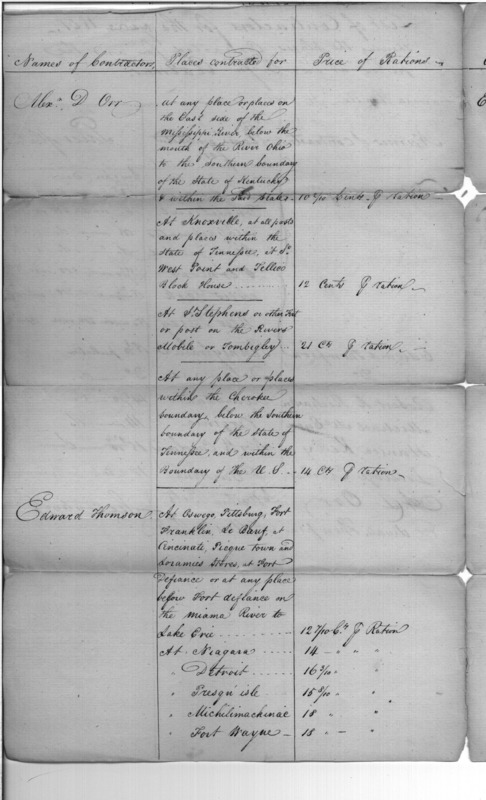 Names of Contractors, Places contracted for Price of Rations
Alexr. D Orr at any place or places on
the East side of the
Mississippi River below the
mouth of the River Ohio
to the southern boundary
of the State of Kentucky
& within the said State - 10 7/10 Cents ⅌ ration
At Knoxville, at all posts
and places within the
State of Tennessee, at So.
West Point and Tellico
Block House 12 Cents ⅌ ration
At St. Stephens or other Fort
or post on the Rivers
Mobile or Tombigbey 21 Cts ⅌ ration
At any place or places
within the Cherokee
boundary below the Southern
boundary of the State of
Tennessee and within the
Boundary of the U.S. 14 Cts ⅌ ration
Edward Thomson At Oswego, Pittsburg, Fort
Franklin, Le Bœuf, at
Cincinati, Picque town and
Loramies Stores, at Fort
Defiance or at any place
before Fort defiance on
the miama River to
Lake Erie 12 7/10 Cts ⅌ Ration
At Niagara 14 - " "
" Detroit 16 /10 " "
" Presqu isle 15 /10 " "
" Michilimackinac 18 " "
" Fort Wayne - 18 " - "